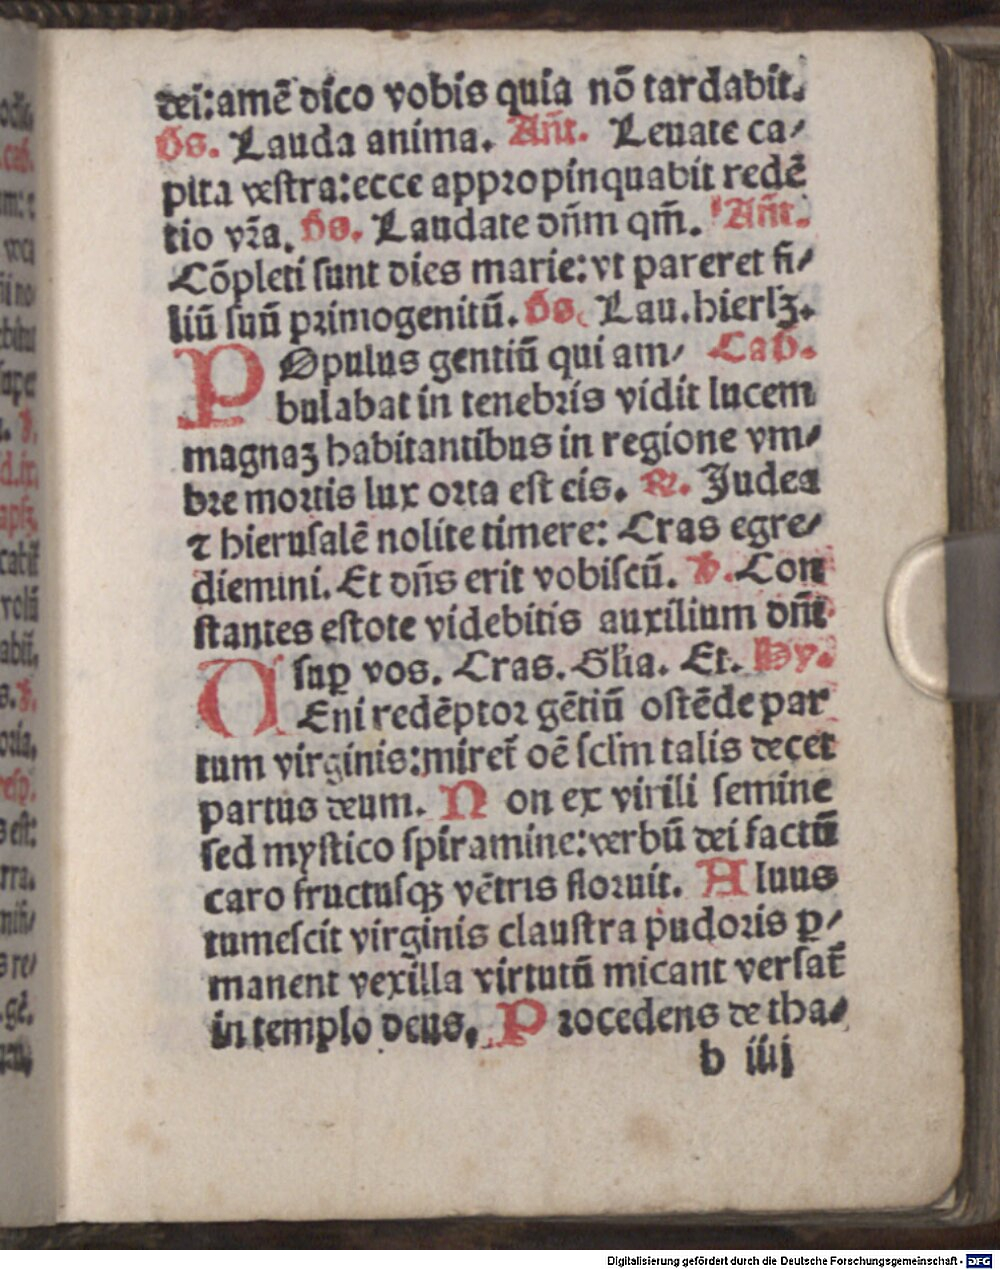 dei:amē dico vobis quia nō tardabit.
p̄s. Lauda anima. Añt. Leuate ca⸗
pita vestra:ecce appropinquabit redē
tio vr̄a. p̄s. Laudate dn̄m qm̄. Añt.
Cōpleti sunt dies marie:vt pareret fi⸗
liū suū primogenitū. p̄s. Lau.hierlꝫ.
POpulus gentiū qui am⸗ Cap̄.
bulabat in tenebris vidit lucem
magnaꝫ habitantibus in regione vm⸗
bre mortis lux orta est eis. ℟. Judea
⁊ hierusalē nolite timere: Cras egre⸗
diemini. Et dn̄s erit vobiscū. ℣. Con
stantes estote videbitis auxilium dn̄i
suꝑ vos. Cras. Gl'ia. Et. Hy.
VEni redēptor gētiū ostēde par
tum virginis:miret̄ oē scl'm talis decet
partus deum. Non ex virili semine
sed mystico spiramine:verbū dei factū
caro fructusqꝫ vētris floruit. Aluus
tumescit virginis claustra pudoris ꝑ⸗
manent vexilla virtutū micant versat̄
in templo deus. Procedens de tha⸗
b iiij
Digitalisierung gefördert durch die Deutsche Forschungsgemeinschaft - DFG